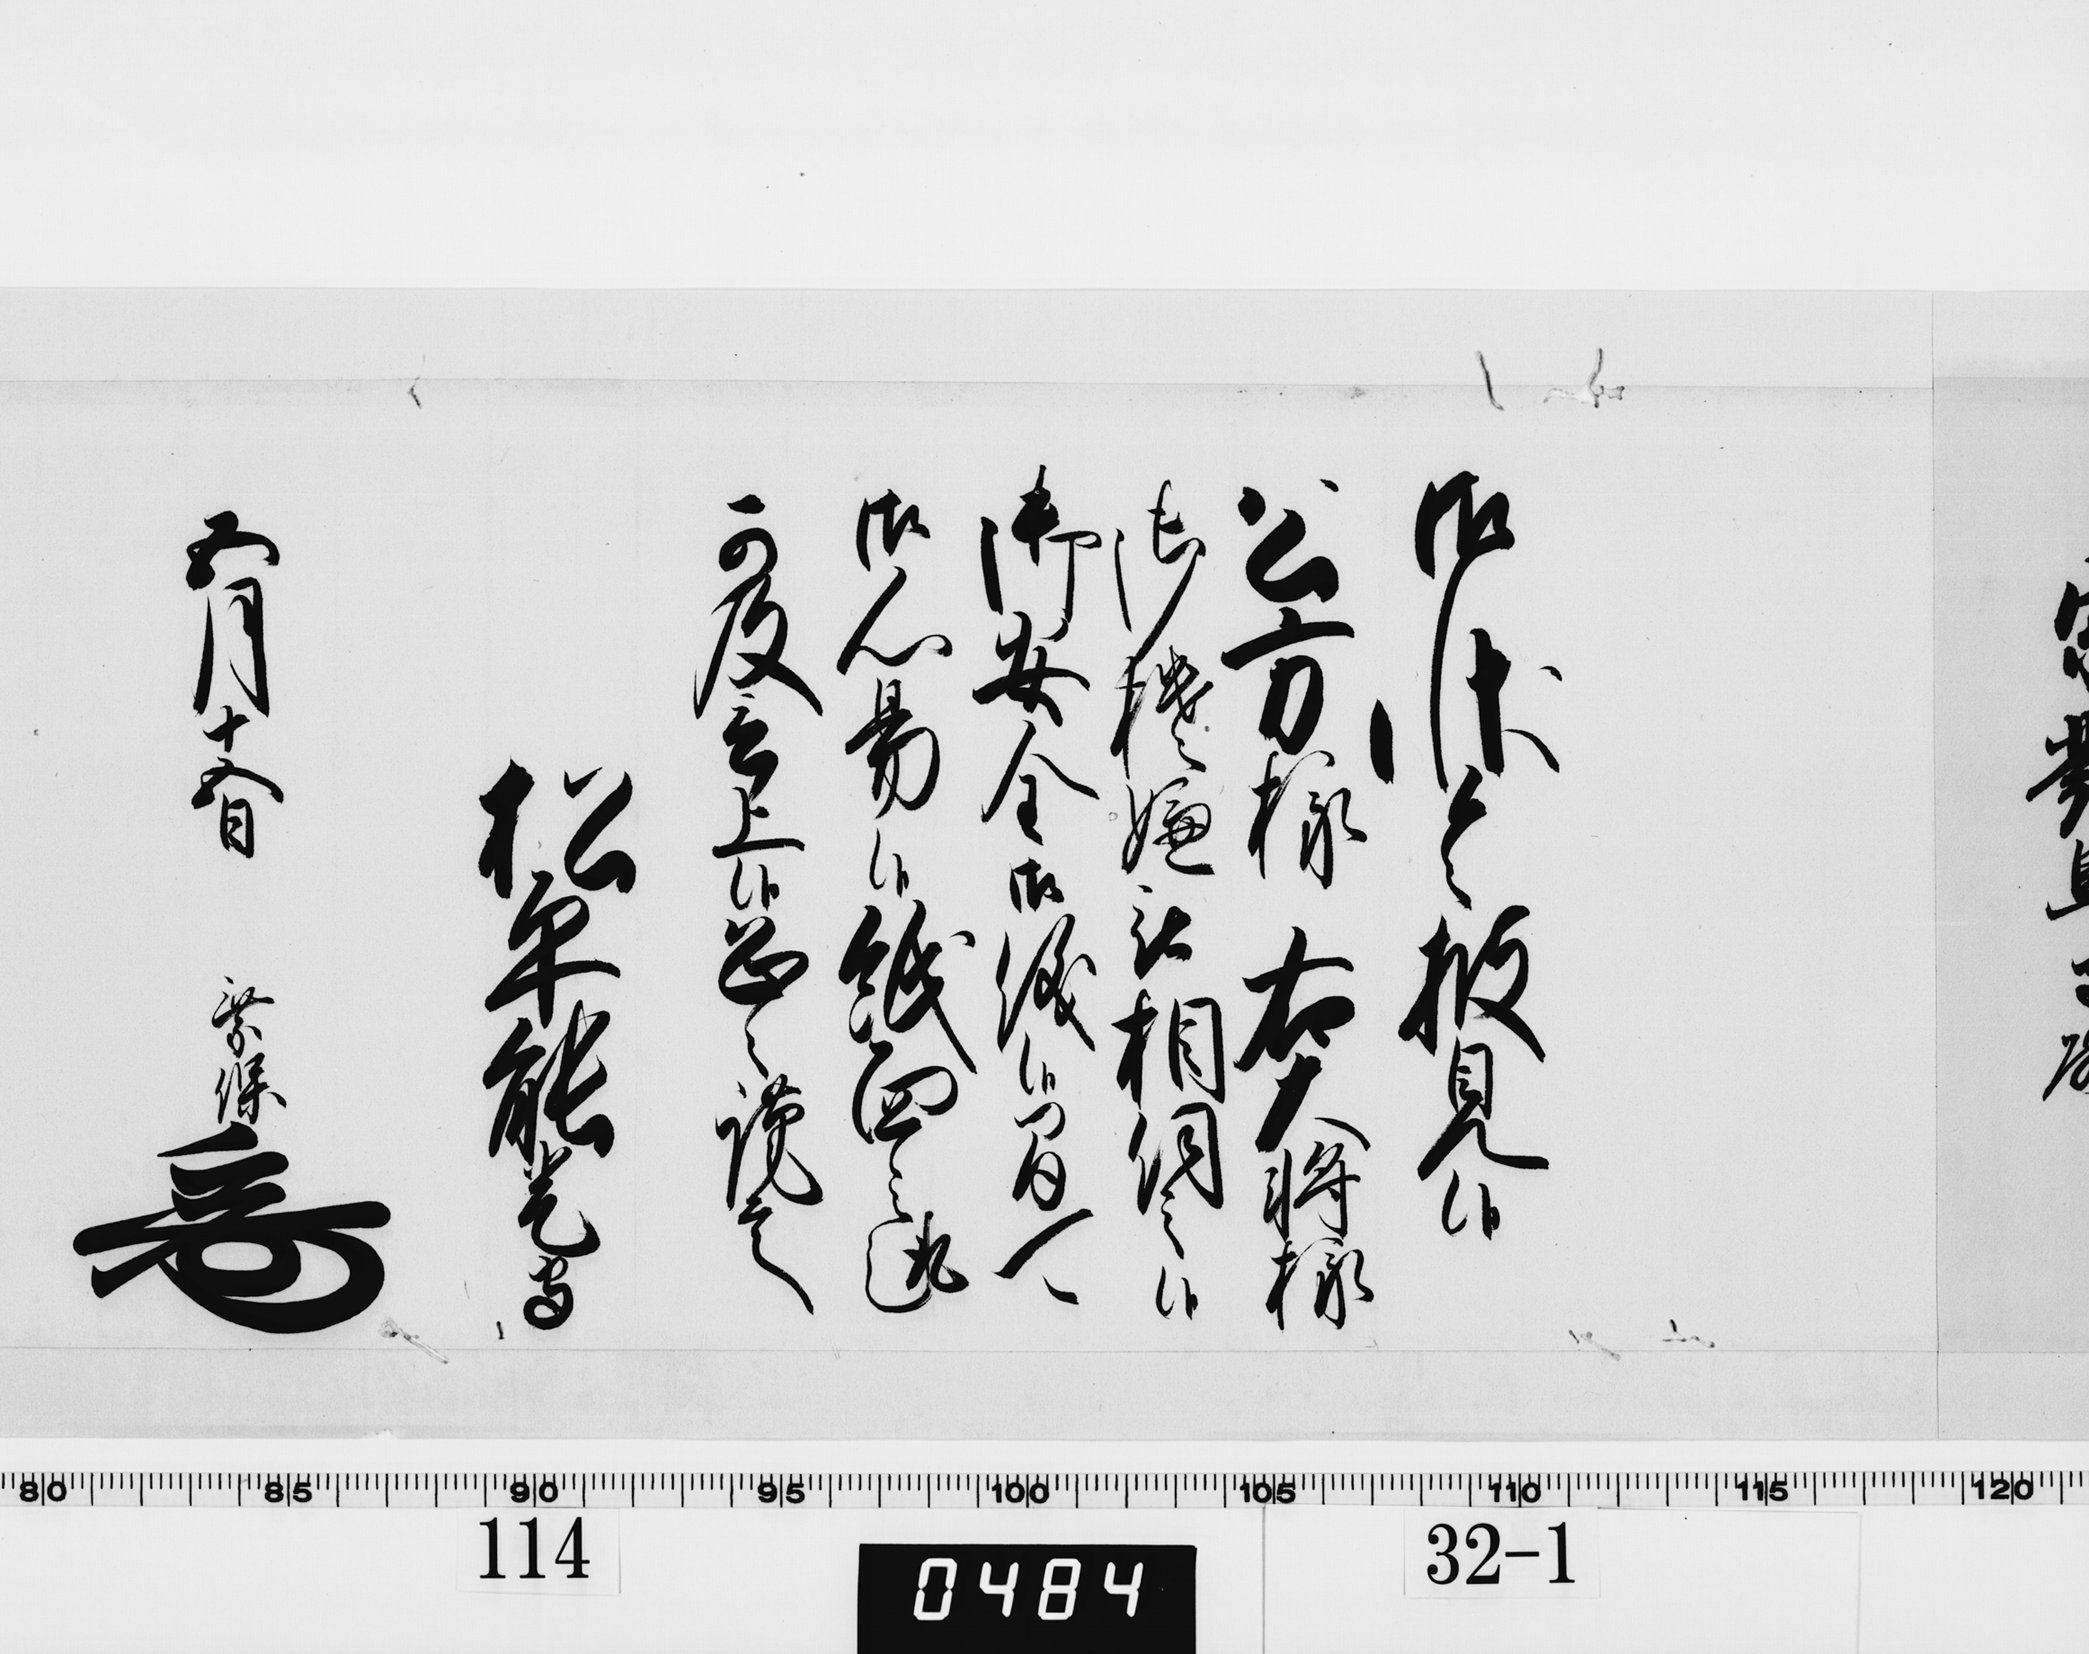 御状令披見候
公方様 右大将様
御機嫌被相伺之候
御安全御儀候間可
御心易候紙面之趣
可及言上候恐々謹言
松平能登守
五月十五日 乗保
80 85 90 95 100 105 110 115 120
114
0484
32-1